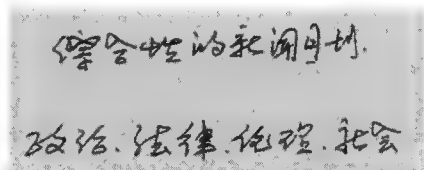 综合性的新闻周刊.
政治.法律.伦理.社会